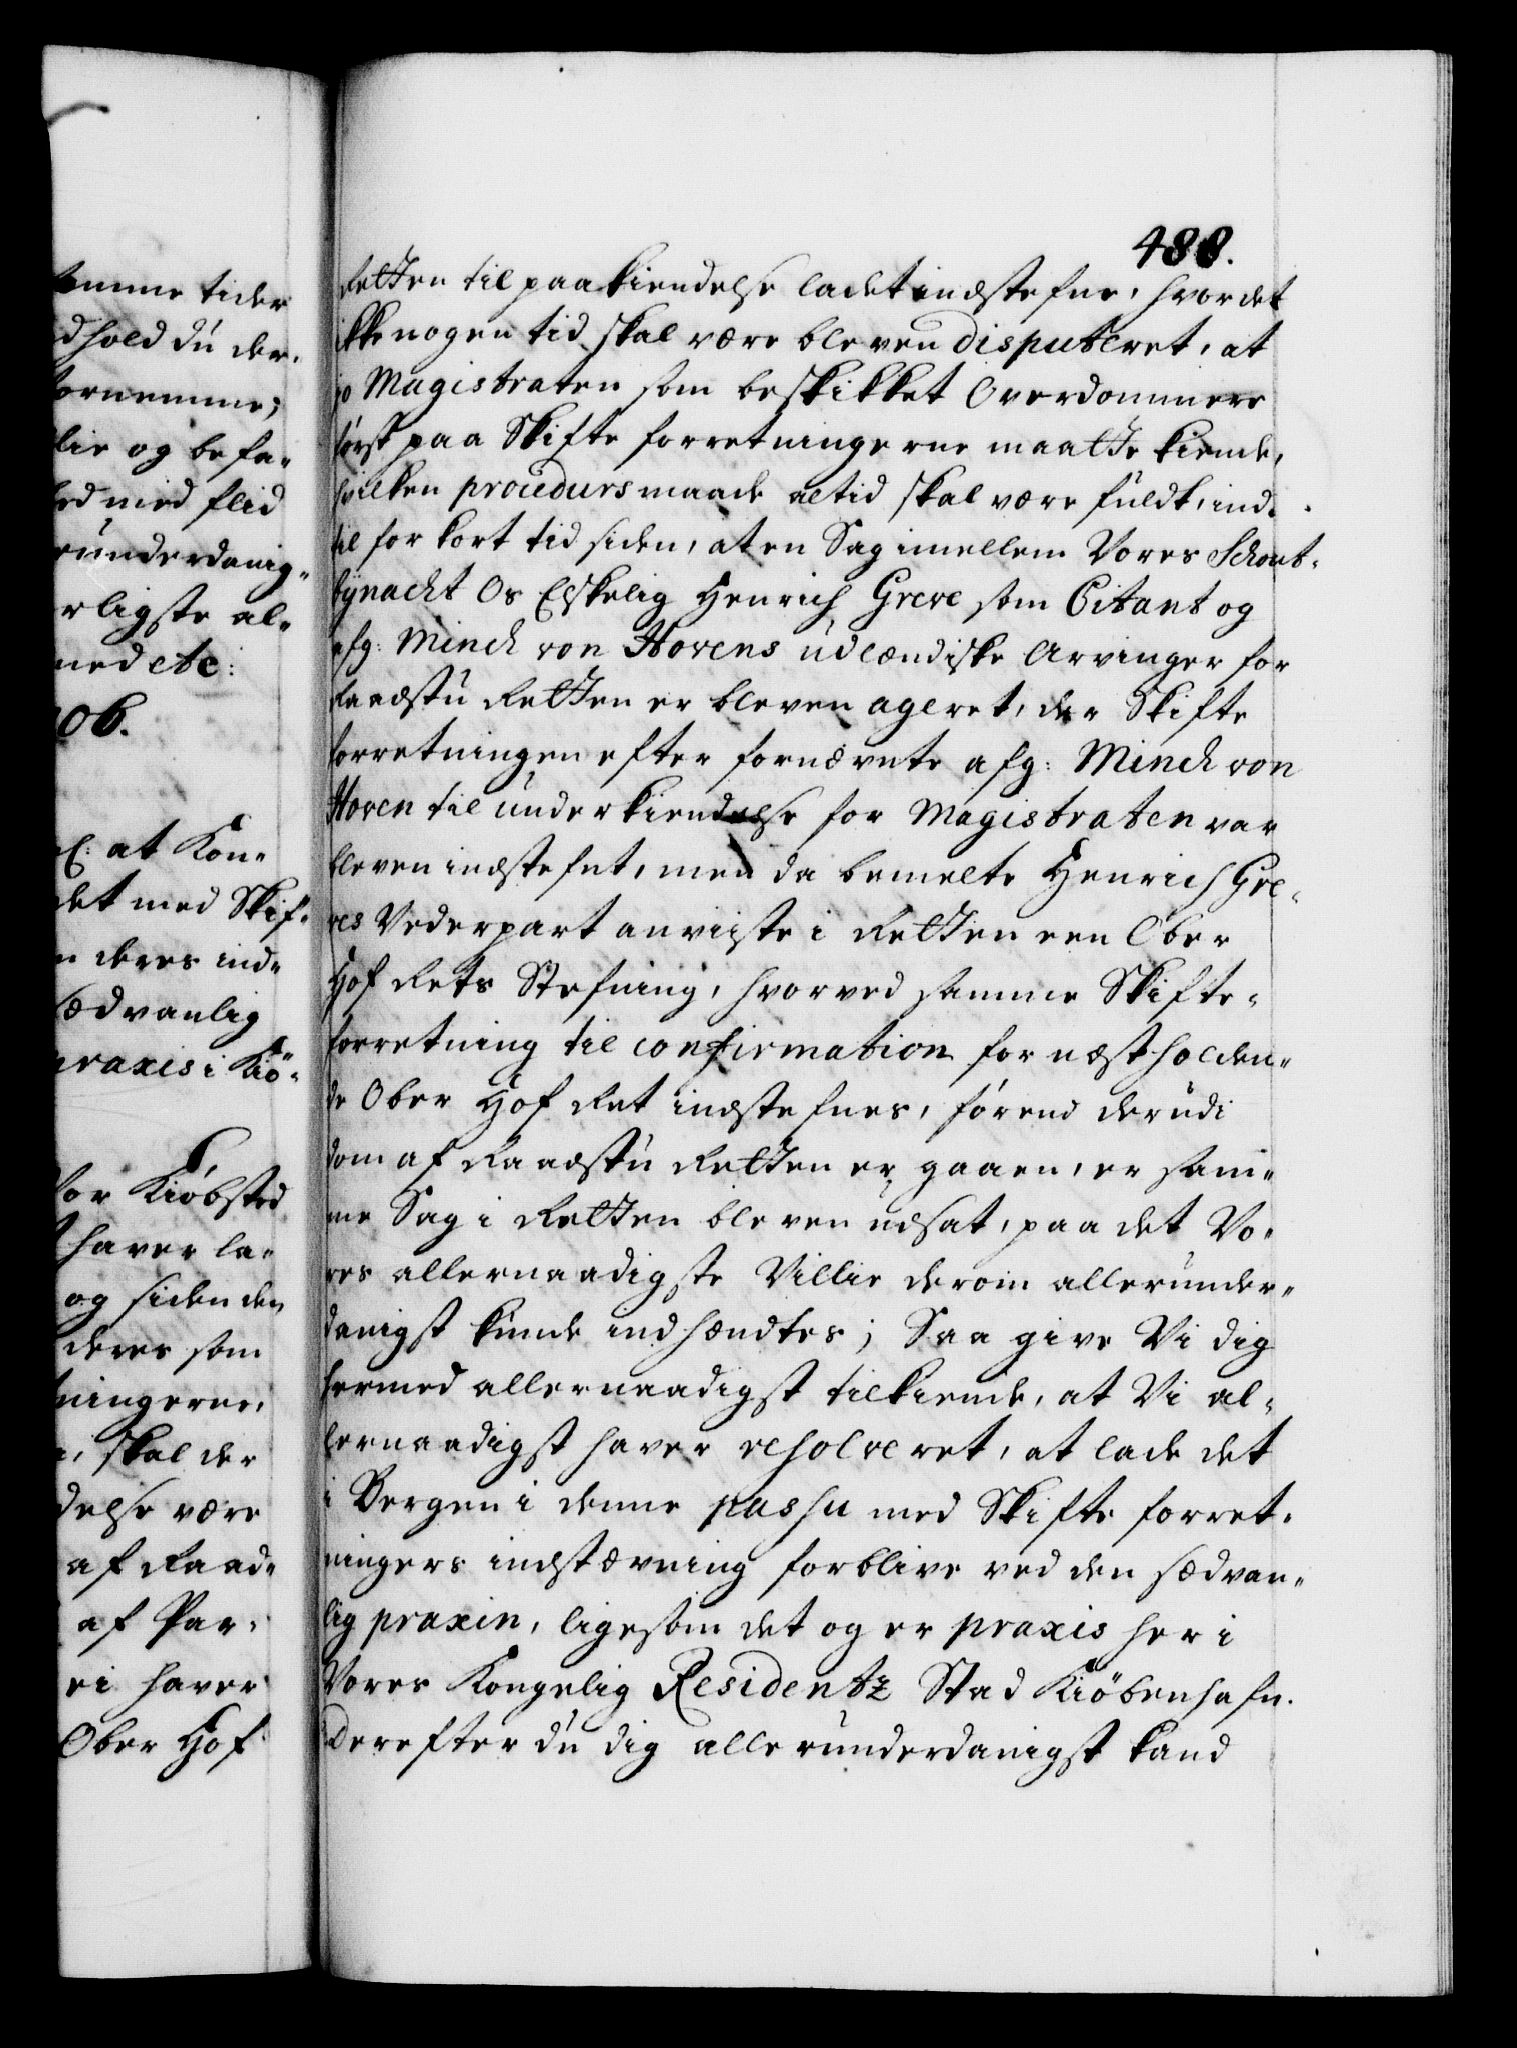 omme tider
dhold du der-
fornemme;
lie og befa-
ed med flid
runderdanig-
rligste al-
ned etc:
06.
at Kon-
det med Skif-
n deres ind-
sædvanlig
praxis i Kiö-
Vor Kiöbsted
haver la-
og siden den
deres som
ningerne,
skal der
delse være
af Raad-
af Par-
ei haver
Ober Hof
488.
Retten til paakiendelse ladet indstefne, hvor det
ikke nogen tid skal være bleven disputeret, at
jo Magistraten som beskikket Overdommere
først paa Skifte forretningerne maatte kiende,
hvilken procedurs maade altid skal være fuldt, ind-
til for kort tid siden, at en Sag imellem Vores Schout-
bynacht Os Elskelig Henrich Greve som Citant og
afg: Minch von Hovens udlændiske Arvinger for
Raadstu Retten er bleven ageret, der Skifte
forretningen efter fornævnte afg: Minch von
Hoven til underkiendelse for Magistraten var
bleven indstefnt, men da bemelte Henrich Gre-
ves Vederpart anviiste i Retten een Ober
Hof Rets Stefning, hvorved samme Skifte-
forretning til confirmation for næstholden-
de Ober Hof Ret indstefnes, førend derudi
dom af Raadstu Retten er gaaen, er sam-
me Sag i Retten bleven udsat, paa det Vo-
res allernaadigste Villie derom allerunder-
danigst kunde indhændtes; Saa give Vi dig
hermed allernaadigst tilkiende, at Vi al-
lernaadigst haver resolveret, at lade det
i Bergen i denne passu med Skifte forret-
ningers indstævning forblive ved den sædvan-
lig praxin, ligesom det og er praxis her i
Vores Kongelig Residentz Stad Kiöbenhafn.
Derefter du dig allerunderdanigst kand